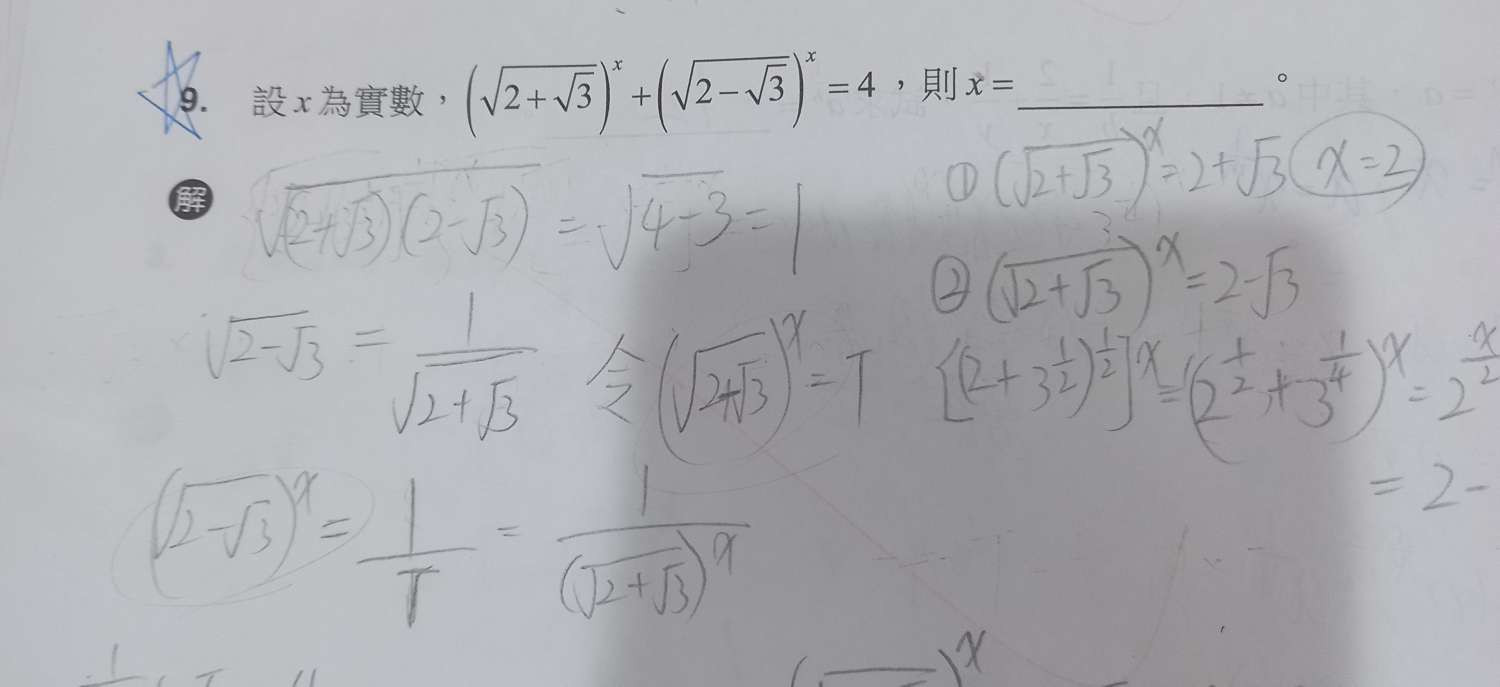 9. 設 x 為實數，(√(2+√3))^x + (√(2−√3))^x = 4，則 x = ________。
解
√((2+√3)(2-√3)) = √(4-3) = 1
√(2-√3) = 1/√(2+√3) 令 (√(2+√3))^x = T
(√(2-√3))^x = 1/T = 1/(√(2+√3))^x
① (√(2+√3))^x = 2+√3 x=2
② (√(2+√3))^x = 2-√3
[(2+3^(1/2))^(1/2)]^x = (2^(1/2) + 3^(1/4))^x = 2^(x/2)
= 2-